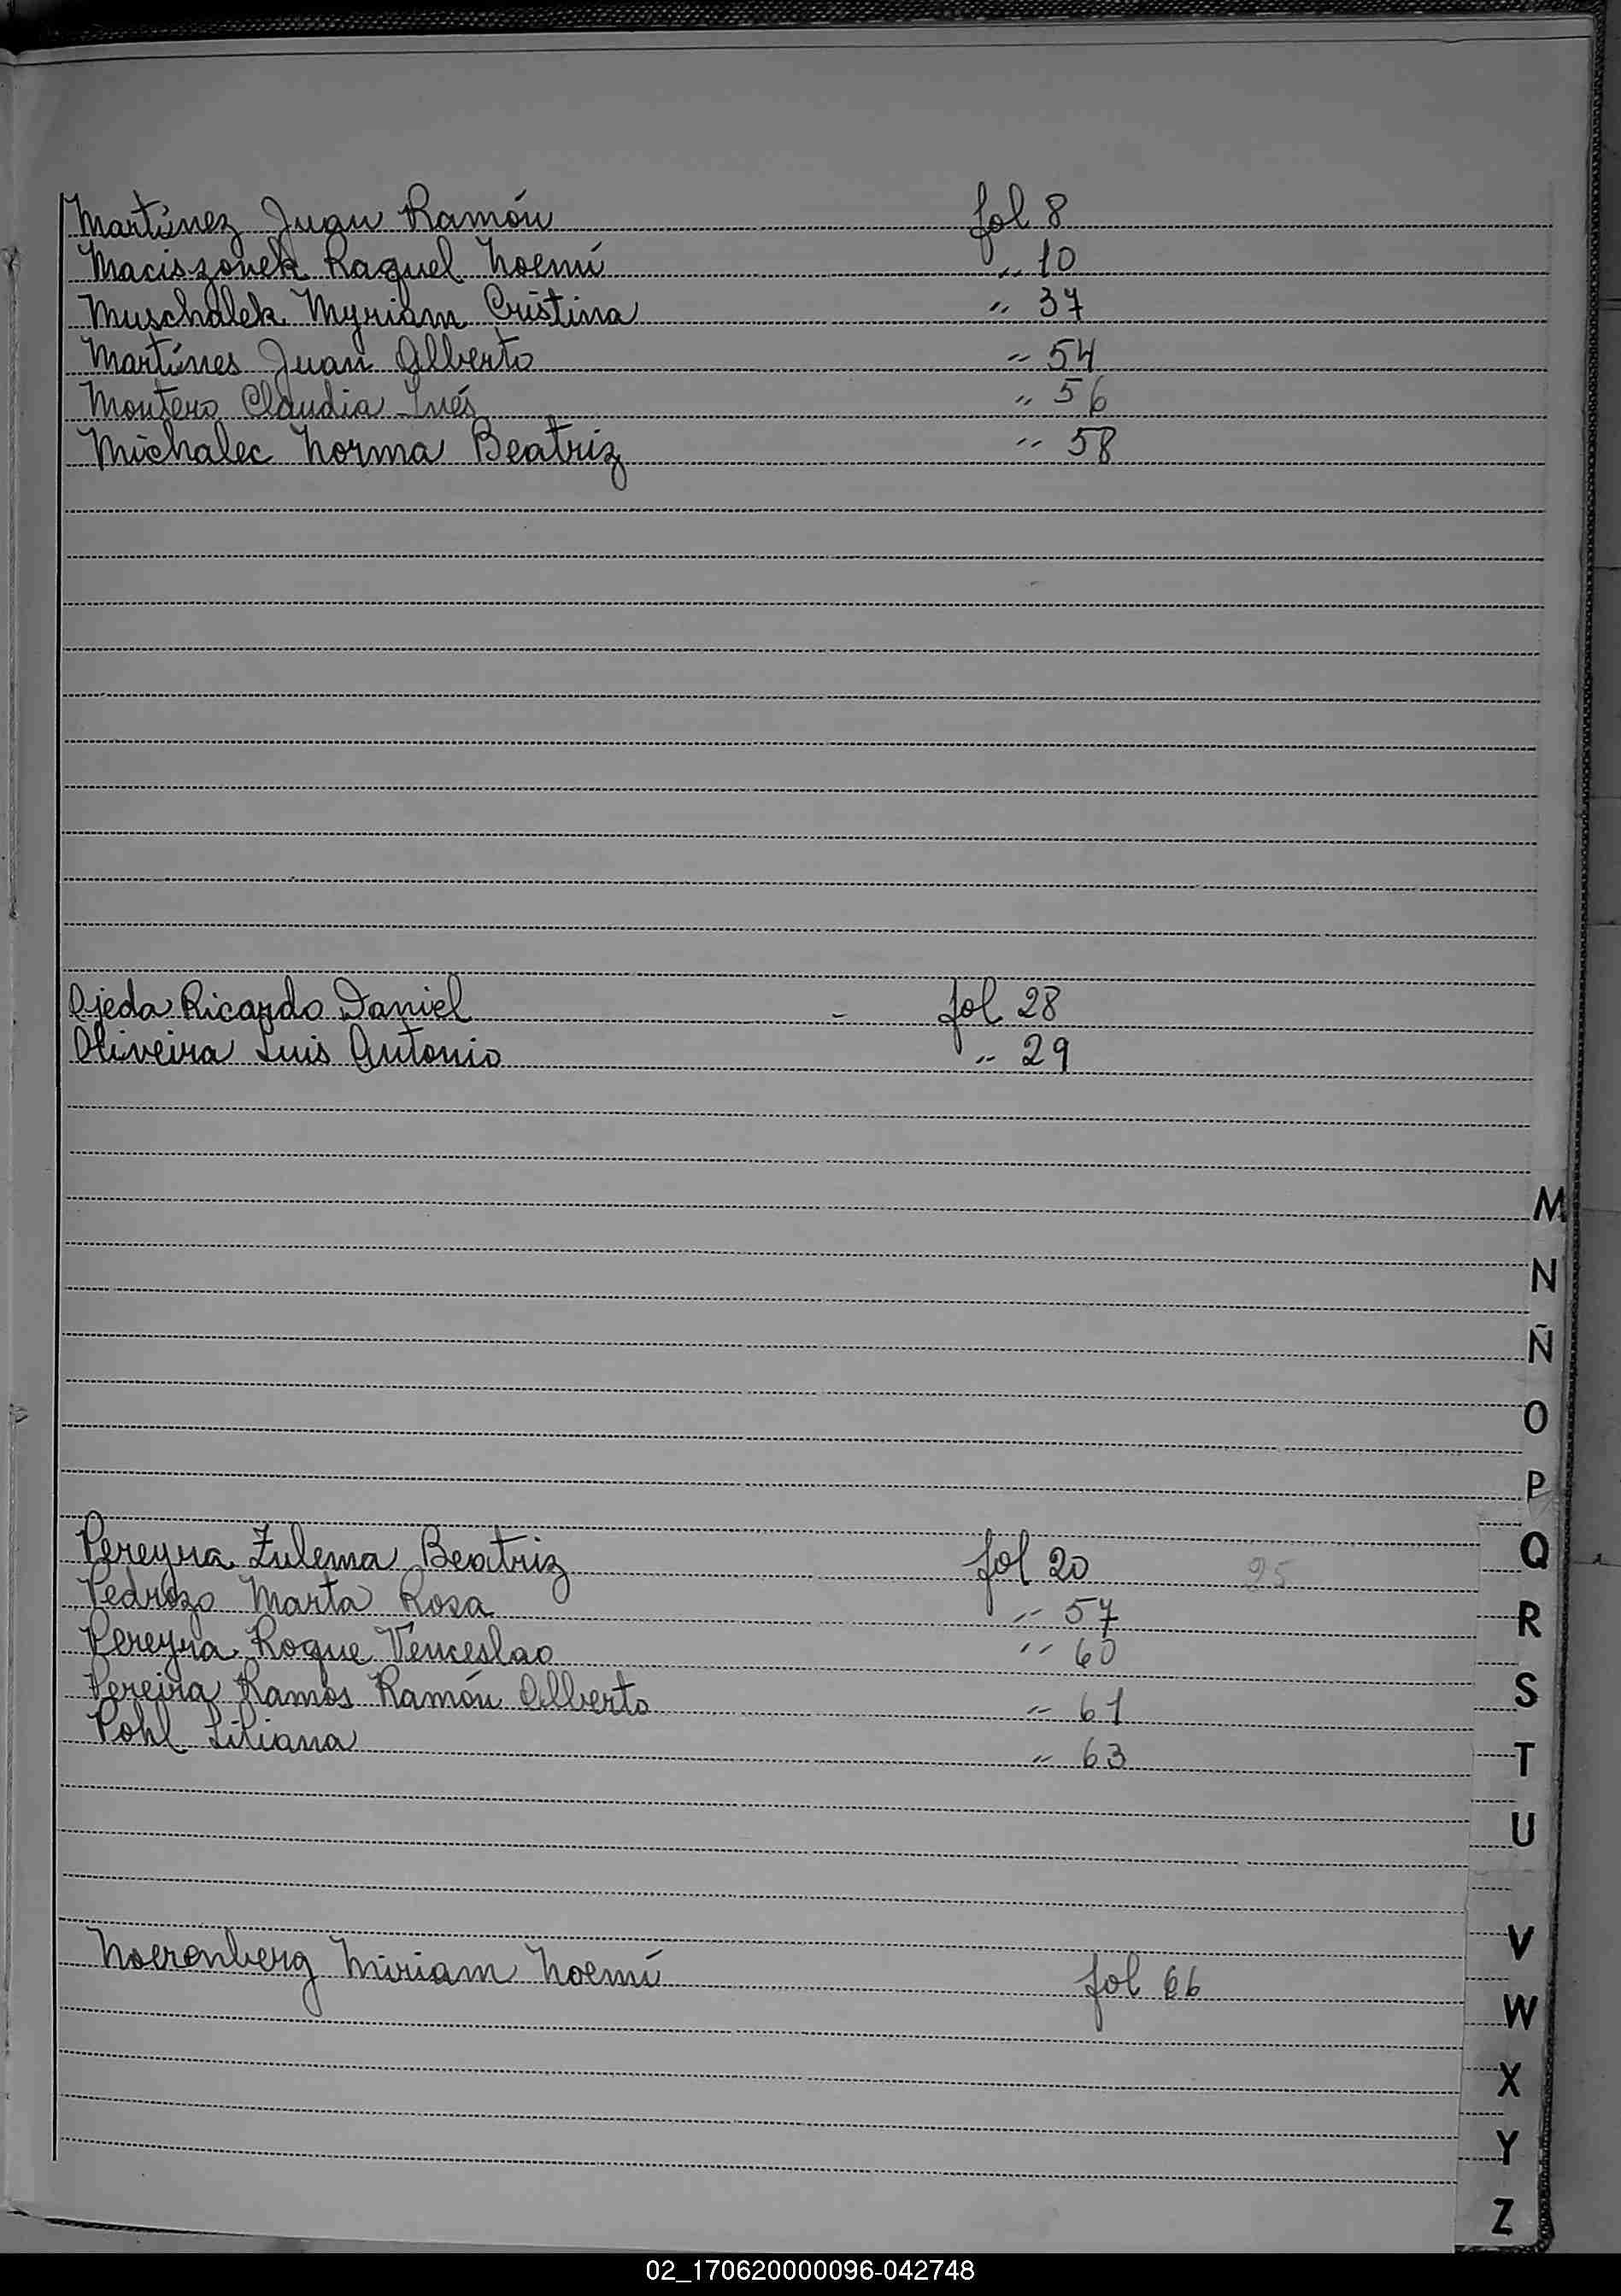 Martínez Juan Ramón fol 8
Maciszonek Raquel Noemí " 10
Muschalek Myriam Cristina " 37
Martínes Juan Alberto " 54
Montero Claudia Inés " 56
Michalec Norma Beatriz " 58
Ojeda Ricardo Daniel - fol 28
Oliveira Luis Antonio " 29
Pereyra Zulema Beatriz fol 20 25
Pedrozo Marta Rosa " 57
Pereyra Roque Venceslao " 60
Pereira Ramos Ramón Alberto " 61
Pohl Liliana " 63
Noerenberg Miriam Noemí fol 66
M
N
Ñ
O
P
Q
R
S
T
U
V
W
X
Y
Z
02_170620000096-042748